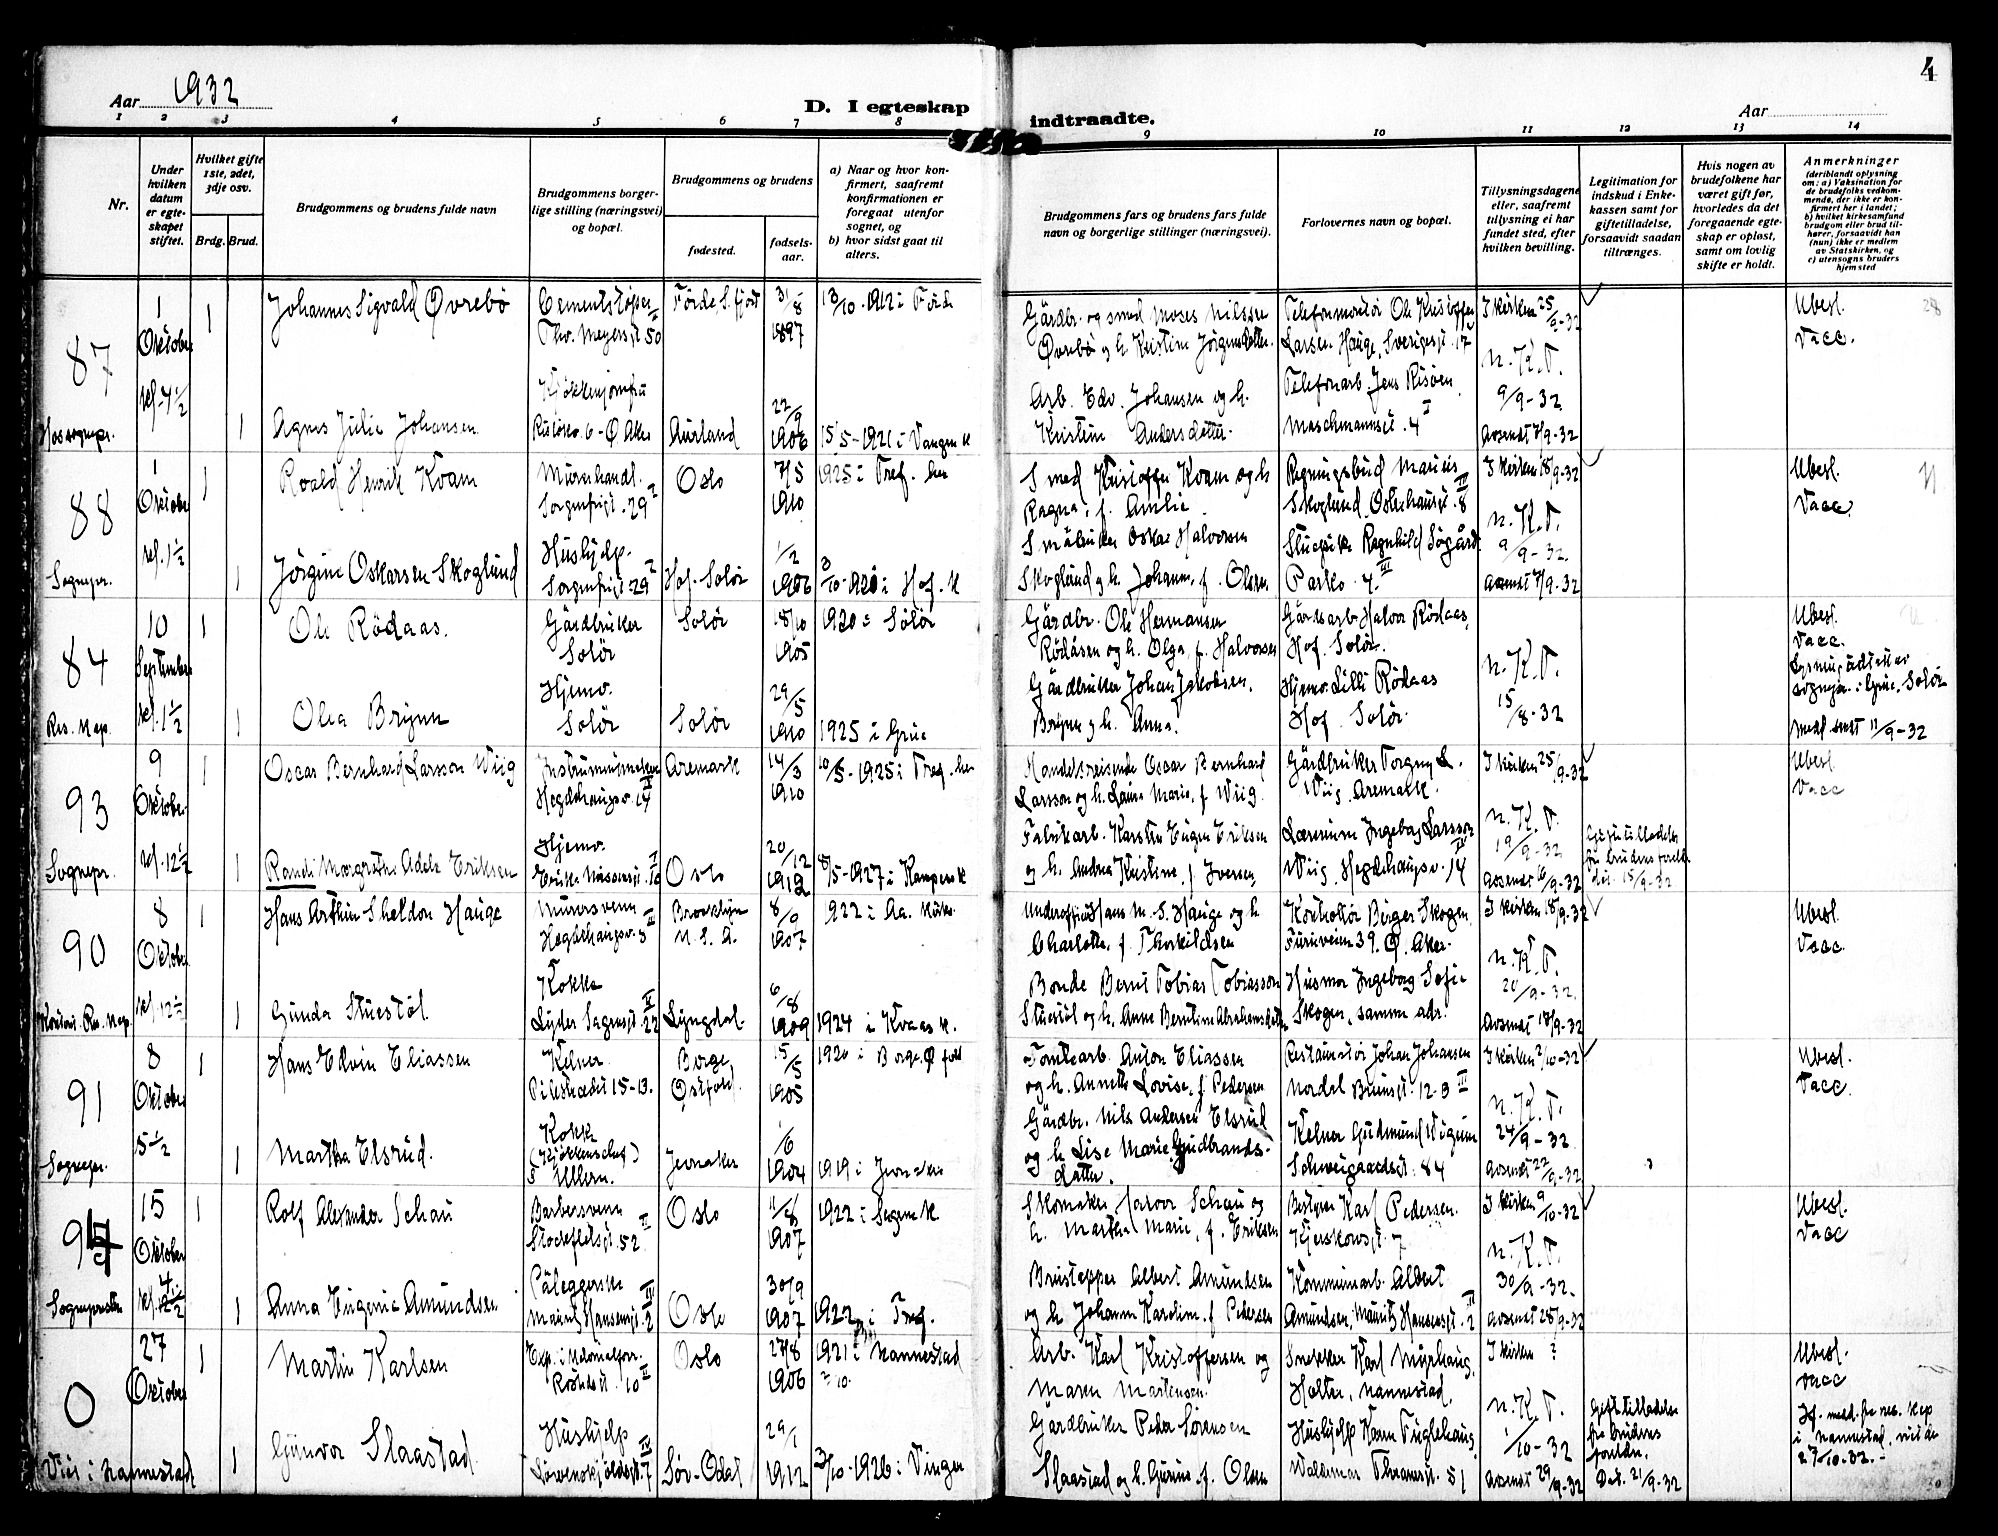 Aar 1932
D. I egteskap
indtraadte.
Aar
4
1 2 3 4 5 6 7 8 9 10 11 12 13 14
Nr.
Under hvilken datum er egteskapet stiftet.
Hvilket gifte 1ste, 2det, 3dje osv.
Brdg. Brud.
Brudgommens og brudens fulde navn
Brudgommens borgerlige stilling (næringsvei) og bopæl.
Brudgommens og brudens
fødested.
fødselsaar.
a) Naar og hvor konfirmert, saafremt konfirmationen er foregaat utenfor sognet, og
b) hvor sidst gaat til alters.
Brudgommens fars og brudens fars fulde navn og borgerlige stillinger (næringsvei).
Forlovernes navn og bopæl.
Tillysningsdagene eller, saafremt tillysning ei har fundet sted, efter hvilken bevilling.
Legitimation for indskud i Enkekassen samt for giftetilladelse, forsaavidt saadan tiltrænges.
Hvis nogen av brudefolkene har været gift før, hvorledes da det foregaaende egteskap er opløst, samt om lovlig skifte er holdt.
Anmerkninger
(deriblandt oplysning om: a) Vaksination for de brudefolks vedkommende, der ikke er konfirmert her i landet; b) hvilket kirkesamfund brudgom eller brud tilhører, forsaavidt han (hun) ikke er medlem av Statskirken, og c) utensogns bruders hjemsted
87
1 Oktober kl. 7 1/2
1
Johannes Sigvald Øvrebø
Cementstøper
Thv. Meyersgt 50
Førde S. fjord
31/8 1897
13/10-1912 i Førde
Gårdbr. og smed Moses Nilssen
Øvrebø og h. Kristine Jørgensdatter
Telefonmontør Ole Kristoffer
Larsen Hauge, Sverigesgt. 17
I kirken 25/9-32
Ubesl.
Vacc.
1
Agnes Julie Johansen
Kjøkkenjomfru
Aurland
22/9 1906
15/5-1921 i Vangen k
Arb. Edv. Johansen og h.
Kristine Andersdatter
Telefonarb. Jens Risøen
Maschmannsgt. 4
N.K.T.
9/9-32
Avsendt 7/9-32
88
1 Oktober kl. 1 1/2
Sognepr.
1
Roald Henrik Kvam
Murerhandl.
Sorgenfrigt. 29
Oslo
7/5 1910
1925 i Tref. her
Smed Kristoffer Kvam og h
Ragna, f. Amlie
Regningsbud Marius
Skoglund, Osterhausgt. 8
I kirken 18/9-32
Ubesl.
Vacc.
1
Jørgine Oskarsen Skoglund
Hushjelp.
Sorgenfrigt. 29
Hof. Solør
1/2 1906
3/10-1920 i Hof. k
Småbruker Oskar Halvorsen
Skoglund og h. Johanne, f. Olsen
Stuepike Ragnhild Søgård
Parkv. 4 III
N.K.T.
9/9-32
Avsendt 7/9-32
84
10 September kl. 1 1/2
Res. Kap.
1
Ole Rødaas.
Gårdbruker
Solør
Solør
18/10 1905
1920 i Solør
Gårdbr. Ole Hermansen
Rødåsen og h. Olga, f. Halvorsen
Gårdsarb. Halvor Rødaas,
Hof. Solør.
Ubesl.
Vacc.
1
Olea Brynn
Hjemv.
Solør
Solør
29/5 1910
1925 i Grue
Gårdbruker Johan Jakobsen.
Brynn og h. Anna.
Hjemv. Lilli Rødaas
Hof. Solør.
N.K.T.
15/8-32
Lysningsattest av
sognepr. i Grue, Solør
Med. sendt 11/9-32
93
9 Oktober kl. 12 1/2
Sognepr.
1
Oscar Bernhard Larsson Wiig
Instrumentmaker
Hegdehaugsv. 14
Aremark
14/3 1910
10/5-1925 i Tref. her
Handelsreisende Oscar Bernhard
Larsson og h. Laura Marie, f. Wiig.
Gårdbruker Torgny L.
Wiig. Aremark.
I kirken 25/9-32
Ubesl.
Vacc
1
Randi Margrethe Adele Eriksen
Hjemv.
Oslo
20/12 1912
8/5-1927 i Kampen k
Fabrikarb. Karsten Eugen Eriksen
og h. Andrea Kristine, f. Iversen,
Lærerinne Ingeborg Larsson
Wiig. Hegdehaugsv. 14
N.K.T.
19/9-32
Avsendt 16/9-32
Giftetilladelse
fra brudens foreldre
dat. 15/9-32
90
8 Oktober kl. 12 1/2
1
Hans Arthur Sheldon Hauge
Murersvenn
Hegdehaugsv. 3
Brooklyn
U.S.A.
8/9 1907
1922 i Aa. kirke.
Underoffiser Hans M. S. Hauge og h
Charlotte, f. Thorkildsen
Kontrollør Birger Skogen
Furuveien 39. Ø. Aker.
I kirken 18/9-32
Ubesl.
Vacc.
1
Gunda Stuestøl
Kokke
Lyder Sagensgt. 22
Lyngdal.
6/8 1909
1924 i Kvaas k.
Bonde Bernt Tobias Tobiasson
Stuestøl og h. Anne Berntine Abrahamsdatter
Husmor Ingeborg Sofie
Skogen, samme adr.
N.K.T.
20/9-32.
Avsendt 18/9-32
91
8 Oktober 5 1/2
Sognepr.
1
Hans Edvin Eliassen
Kelner
Pilestrædet 15-13.
Borge
Østfold.
15/5 1905
1920 i Borge Ø fold
Tomtearb. Anton Eliassen
og h. Annette Lovise, f. Pedersen
Restauratør Johan Johansen
Nordal Brunsgt. 12-3 III
I kirken 2/10-32
Ubesl.
Vacc
1
Martha Elsrud.
Kokk
(Kjøkkenchef)
Ullern.
Jevnaker
1/6 1904
1919 i Jevnaker
Gårdbr. Nils Andersen Elsrud
og h. Lise Marie Gudbrands-
datter.
Kelner Gudmund Vigeim
Schweigaardsgt. 84
N.K.T.
24/9-32
Avsendt 22/9-32
94
15 Oktober kl. 4
1
Rolf Alexander Schau
Barbersvenn
Stockfletsgt. 52
Oslo
11/8 1907
1922 i Sagene K
Skomaker Halvor Schau og
h. Marthe Marie, f. Eriksen
Bestyrer Karl Pedersen.
Kjerskowsgt. 7
I kirken 9/10-32
Ubesl.
Vacc
1
Anna Eugenie Amundsen
Pålæggerske
Maurits Hansensgt. 2
Oslo
30/9 1907
1922 i Tref.
Brustepper Albert Amundsen
og h. Johanne Karoline f. Pedersen
Kommunearb. Albert
Amundsen, Maurits Hansensgt. 2
N.K.T.
30/9-32.
Avsendt 28/9-32
0
27 Oktober
Viet i Nannestad
1
Martin Karlsen
Oslo
27/8 1906
1921 i Nannestad
2/10.
Arb. Karl Kristoffersen og
Maren Martensen.
Snekker Karl Myrhaug,
Holter, Nannestad.
I kirken ?
Ubesl.
Vacc
1
Gunvor Slaastad
Hushjelp
Løvenskjoldsgt. 7
Sør-Odal
29/1 1912
3/10-1926 i Vinger
Gårdbruker Peder Sørensen
Slaastad og h. Gurine f. Olsen
Hushjelp Karen Fuglehaug,
Waldemar Thranesgt. 51
N.K.T.
1/10-32
Avsendt 29/9-32
Gift.tilladelse
fra brudens
foreldre.
Dat. 21/9-32
Jf. med. fra res. kap
i Nannestad, viet der
27-10-32.-